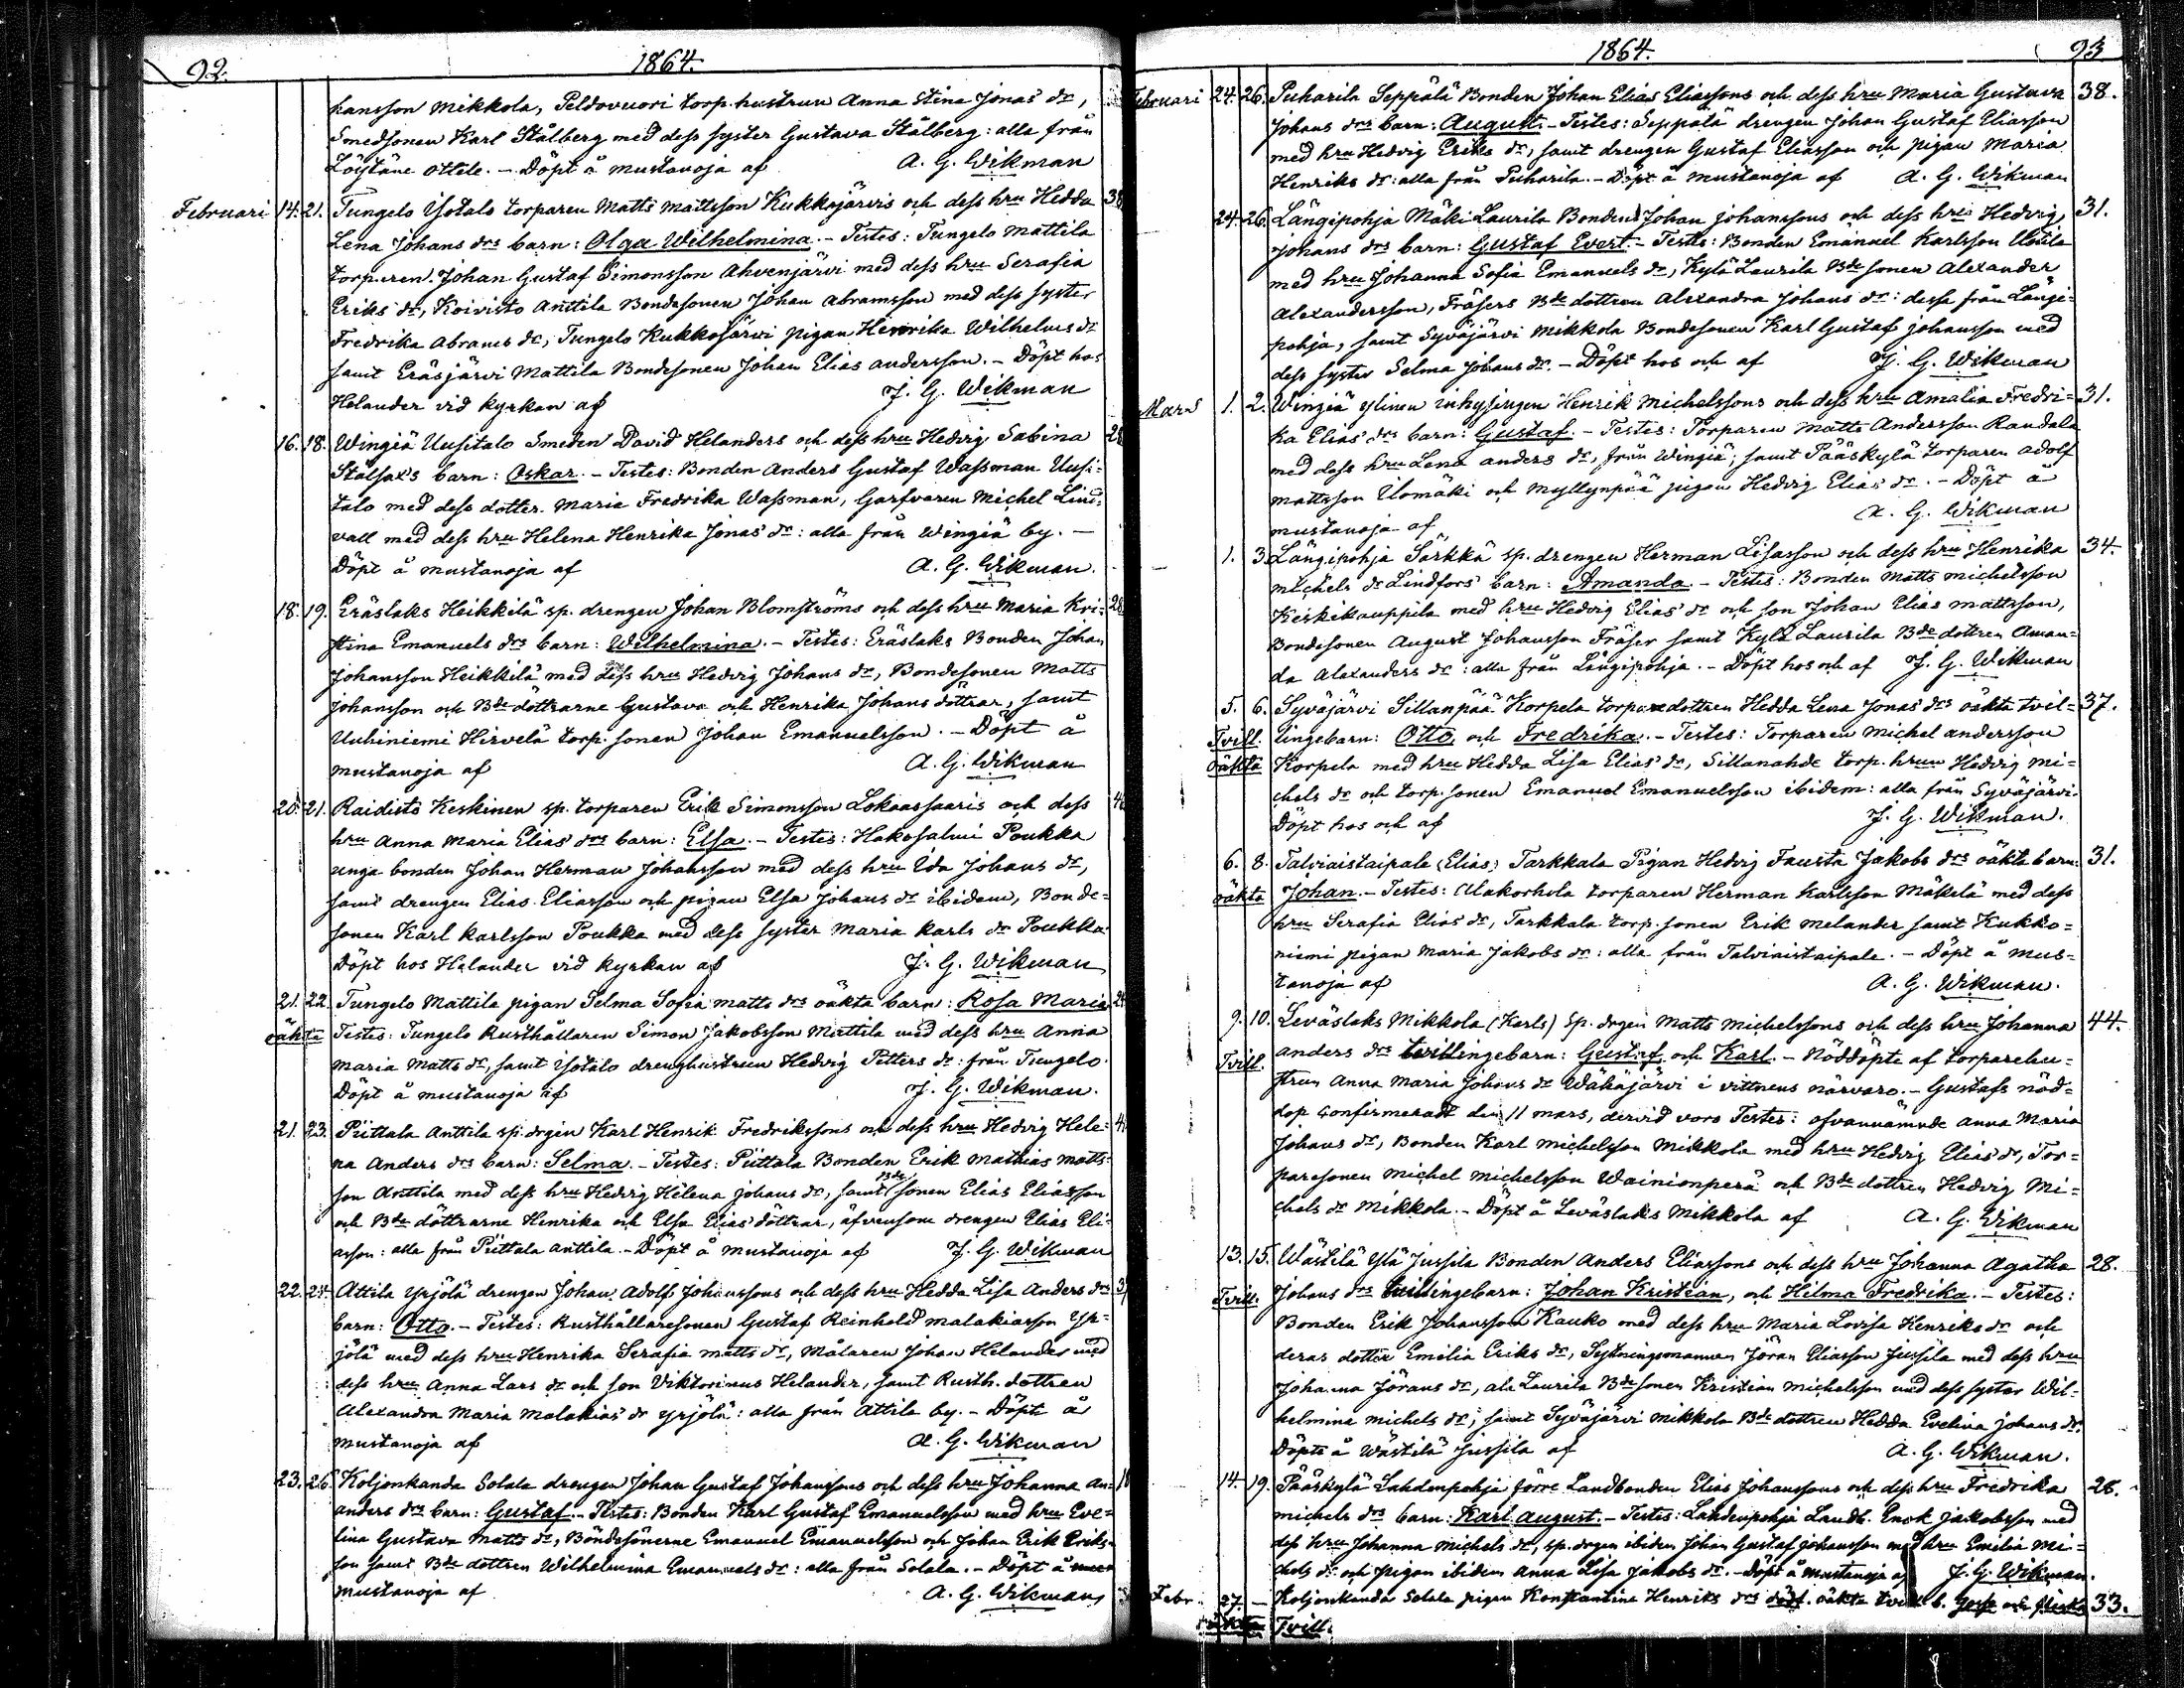 92.
1864.
hansson Mikkola, Peldovuori torp. hustrun Anna Stina Jonas dr,
Smedsonen Karl Stålberg med dess syster Gustava Stålberg: alla från
Löytäne Ottele. – Döpt å Mustanoja af A. G. Wikman
Februari 14. 21. Tungelo Yotalo torparen Matts Mattsson Kukkojärvis och dess hru Hedda 38
Lena Johans drs barn: Olga Wilhelmina. – Testes: Tungelo Mattila
torparen Johan Gustaf Simonsson Ahvenjärvi med dess hru Serafia
Eriks dr, Koivisto Anttila Bondesonen Johan Abramsson med dess syster
Fredrika Abrams dr, Tungelo Kukkojärvi pigan Henrika Wilhelms dr
samt Eräsjärvi Mattila Bondesonen Johan Elias Andersson. – Döpt hos
Helander vid kyrkan af J. G. Wikman
16. 18. Wingiä Uusitalo Smeden David Helanders och dess hru Hedvig Sabina 28
Stålsax's barn: Oskar. – Testes: Bonden Anders Gustaf Wassman Uusi=
talo med dess dotter Maria Fredrika Wassman, Garfvaren Michel Lind=
vall med dess hru Helena Henrika Jonas dr: alla från Wingiä by. –
Döpt å Mustanoja af A. G. Wikman.
18. 19. Eräslaks Heikkilä sp. drengen Johan Blomströms och dess hru Maria Kri= 28
stina Emanuels drs barn: Wilhelmina. – Testes: Eräslaks Bonden Johan
Johansson Heikkilä med dess hru Hedvig Johans dr, Bondesonen Matts
Johansson och Bde döttrarne Gustava och Henrika Johans döttrar, samt
Uuhiniemi Hirvelä torp. sonen Johan Emanuelsson. – Döpt å
Mustanoja af A. G. Wikman
20. 21. Raidisto Keskinen sp. torparen Erik Simonsson Lokaassaaris och dess
hru Anna Maria Elias drs barn: Elsa. – Testes: Hakosalmi Poukka
unga bonden Johan Herman Johansson med dess hru Ida Johans dr,
samt drengen Elias Eliasson och pigan Elsa Johans dr ibidem, Bonde=
sonen Karl Karlsson Poukka med dess syster Maria Karls dr Poukka
Döpt hos Helander vid kyrkan af J. G. Wikman
21. 22. Tungelo Mattila pigan Selma Sofia Matts drs oäkta barn: Rosa Maria
oäkta Testes: Tungelo Rusthållaren Simon Jakobsson Mattila med dess hru Anna
Maria Matts dr, samt Yotalo drenghustrun Hedvig Petters dr: från Tungelo.
Döpt å Mustanoja af J. G. Wikman.
21. 23. Piittala Anttila sp. drgen Karl Henrik Fredrikssons och dess hru Hedvig Hele=
na Anders drs barn: Selma. – Testes: Piittala Bonden Erik Mathias Matts=
son Anttila med dess hru Hedvig Helena Johans dr, samt Bde sonen Elias Eliasson
och Bde döttrarne Henrika och Elsa Elias döttrar, äfvensom drengen Elias Eli=
asson: alla från Piittala Anttila. – Döpt å Mustanoja af J. G. Wikman
22. 24. Attila Yrjölä drengen Johan Adolf Johanssons och dess hru Hedda Lisa Anders drs
barn: Otto. – Testes: Rusthållaresonen Gustaf Reinhold Malakiasson Yr=
jölä med dess hru Henrika Serafia Matts dr, Målaren Johan Helander med
dess hru Anna Lars dr och son Viktorinus Helander, samt Rusth. dottren
Alexandra Maria Malakias dr Yrjölä: alla från Attila by. – Döpt å
Mustanoja af A. G. Wikman
23. 26. Koljonkanda Solala drengen Johan Gustaf Johanssons och dess hru Johanna An=
anders drs barn: Gustaf. – Testes: Bonden Karl Gustaf Emanuelsson med hru Eve=
lina Gustava Matts dr, Bondesönerne Emanuel Emanuelsson och Johan Erik Eriks=
son samt Bde dottren Wilhelmina Emanuels dr: alla från Solala. – Döpt å
Mustanoja af A. G. Wikman
1864. 93
Februari 24. 26. Puharila Seppälä Bonden Johan Elias Eliassons och dess hru Maria Gustava 38.
Johans drs barn: August. – Testes: Seppälä drengen Johan Gustaf Eliasson
med hru Hedvig Eriks dr, samt drengen Gustaf Eliasson och pigan Maria
Henriks dr: alla från Puharila. – Döpt å Mustanoja af A. G. Wikman
24. 26. Längipohja Mäki Laurila Bonden Johan Johanssons och dess hru Hedvig 31.
Johans drs barn: Gustaf Evert. – Testes: Bonden Emanuel Karlsson Uotila
med hru Johanna Sofia Emanuels dr, Kylä Laurila Bde sonen Alexander
Alexandersson, Fräsers Bde dottren Alexandra Johans dr: desse från Längi=
pohja, samt Syväjärvi Mikkola Bondesonen Karl Gustaf Johansson med
dess syster Selma Johans dr. – Döpt hos och af J. G. Wikman
Mars 1. 2. Wingiä Ylinen inhysingen Henrik Michelssons och dess hru Amalia Fredri= 31.
ka Elias drs barn: Gustaf. – Testes: Torparen Matts Andersson Randala
med dess hru Lena Anders dr, från Wingiä, samt Pääskylä torparen Adolf
Mattsson Ilomäki och Myllynpää pigan Hedvig Elias dr. – Döpt å
Mustanoja af A. G. Wikman
1. 3. Längipohja Särkkä sp. drengen Herman Lisasson och dess hru Henrika 34.
Michels dr Lindfors barn: Amanda. – Testes: Bonden Matts Michelsson
Keskikauppila med hru Hedvig Elias dr och son Johan Elias Mattsson,
Bondesonen August Johansson Fräser samt Kylä Laurila Bde dottren Aman=
da Alexanders dr: alla från Längipohja. – Döpt hos och af J. G. Wikman
5. 6. Syväjärvi Sillanpää Korpela torparedottren Hedda Lena Jonas drs oäkta tvil= 37.
Tvill. lingebarn: Otto och Fredrika. – Testes: Torparen Michel Andersson
oäkta Korpela med hru Hedda Lisa Elias dr, Sillanahde torp. hrun Hedvig Mi=
chels dr och torp. sonen Emanuel Emanuelsson ibidem: alla från Syväjärvi.
Döpt hos och af J. G. Wikman.
6. 8. Talviaistaipale (Elias) Tarkkala Pigan Hedvig Fausta Jakobs drs oäkta barn: 31.
oäkta Johan. – Testes: Alakorhola torparen Herman Karlsson Mäkelä med dess
hru Serafia Elias dr, Tarkkala torp. sonen Erik Melander samt Kukko=
niemi pigan Maria Jakobs dr: alla från Talviaistaipale. – Döpt å Mus=
tanoja af A. G. Wikman.
9. 10. Leväslaks Mikkola (Karls) sp. drgen Matts Michelssons och dess hru Johanna 44.
Tvill. Anders drs tvillingebarn: Gustaf och Karl. – Nöddöpte af torparehu=
strun Anna Maria Johans dr Wähäjärvi i vittnens närvaro. – Gustafs nöd=
dop confirmeradt den 11 Mars, dervid voro Testes: ofvannämnde Anna Maria
Johans dr, Bonden Karl Michelsson Mikkola med hru Hedvig Elias dr, Tor=
paresonen Michel Michelsson Wainionperä och Bde dottren Hedvig Mi=
chels dr Mikkola. – Döpt å Leväslaks Mikkola af A. G. Wikman
13. 15. Wästilä Ylä Jussila Bonden Anders Eliassons och dess hru Johanna Agatha 28.
Tvill. Johans drs tvillingebarn: Johan Kristian, och Hilma Fredrika. – Testes:
Bonden Erik Johansson Kauko med dess hru Maria Lovisa Henriks dr och
deras dotter Emilia Eriks dr, Sytningsmannen Jöran Eliasson Jussila med dess hru
Johanna Jörans dr, Ala Laurila Bde sonen Kristian Michelsson med dess syster Wil=
helmina Michels dr, samt Syväjärvi Mikkola Bde dottren Hedda Evelina Johans dr.
Döpte å Wästilä Jussila af A. G. Wikman.
14. 19. Pääskylä Lahdenpohja förre Landbonden Elias Johanssons och dess hru Fredrika 28.
Michels drs barn: Karl August. – Testes: Lahdenpohja Landb. Enok Jakobsson med
dess hru Johanna Michels dr, sp. drgen ibidem Johan Gustaf Johansson med hru Emilia Mi=
chels dr och pigan ibidem Anna Lisa Jakobs dr. – Döpt å Mustanoja af J. G. Wikman.
Febr. 27. – Koljonkanda Solala pigan Konstantina Henriks drs dödf. oäkta tvill. b. Gosse och flicka 33.
oäkta Tvill.